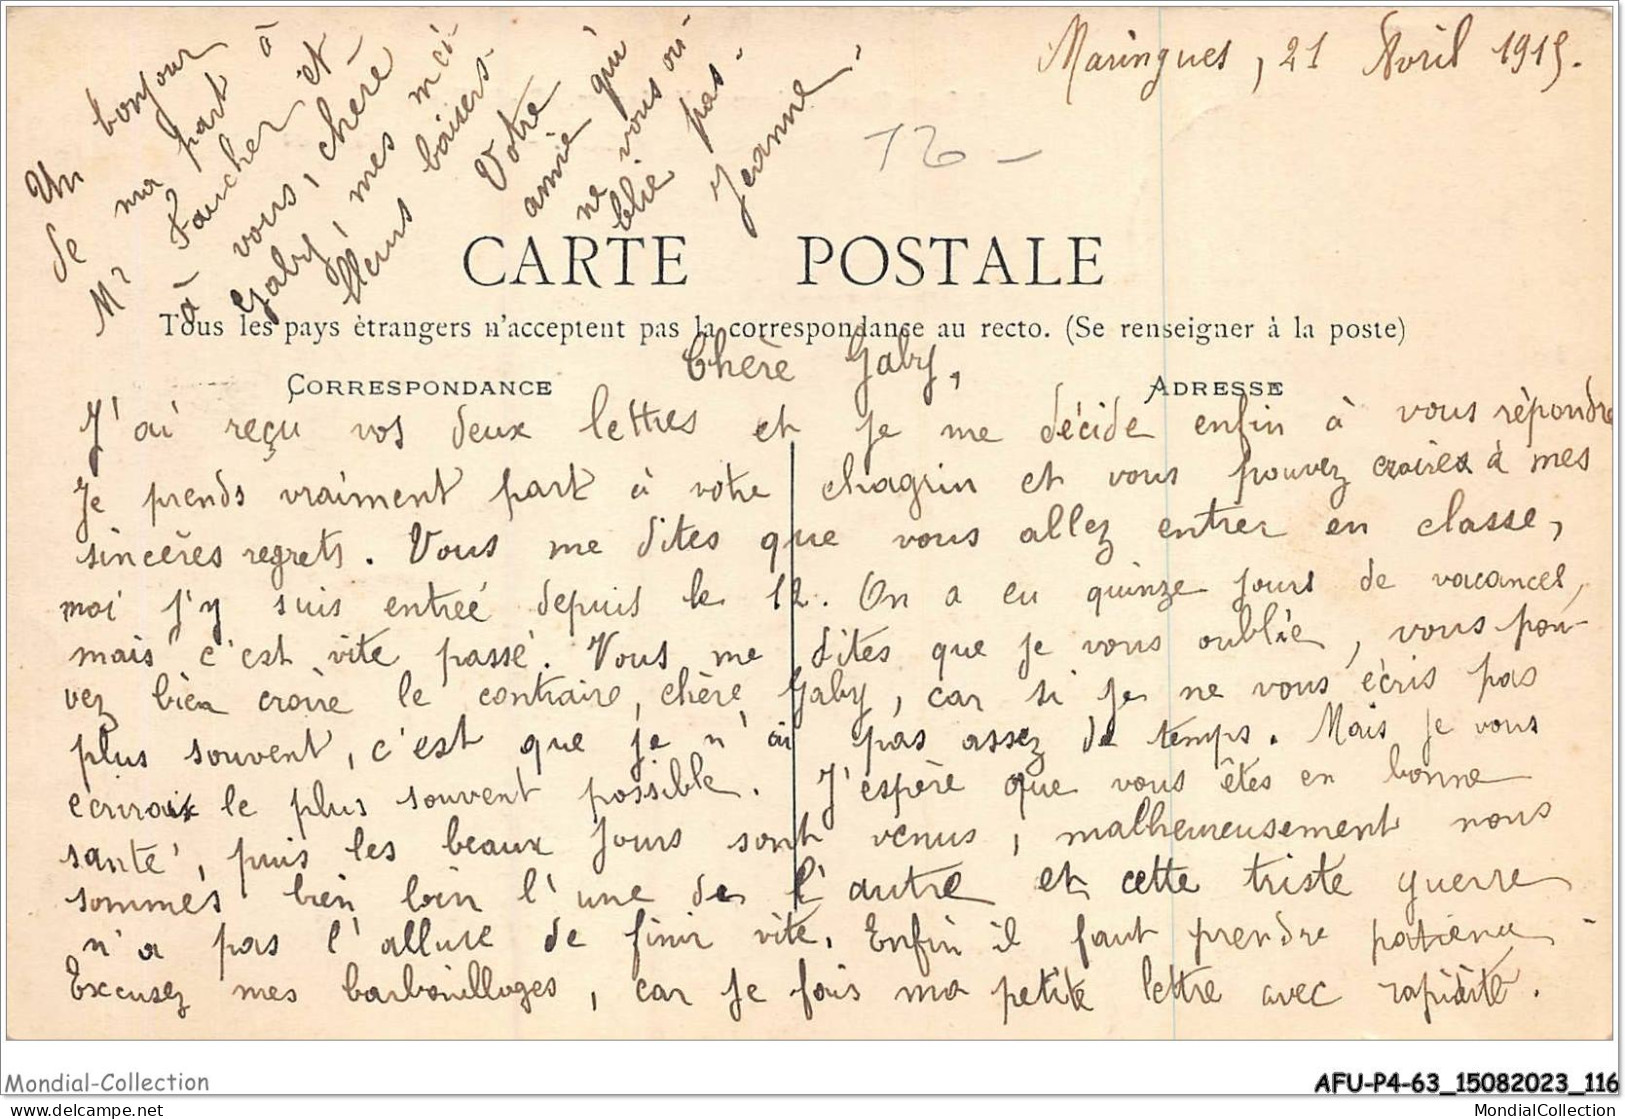 Maringues, 21 Avril 1915.
12 -
CARTE POSTALE
Tous les pays étrangers n'acceptent pas la correspondance au recto. (Se renseigner à la poste)
CORRESPONDANCE
ADRESSE
Chère Gaby,
J'ai reçu vos deux lettres et je me décide enfin à vous répondre
Je prends vraiment part à votre chagrin et vous pouvez croire à mes
sincères regrets. Vous me dites que vous allez entrer en classe,
moi j'y suis entreé depuis le 12. On a eu quinze jours de vacances,
mais c'est vite passé. Vous me dites que je vous oublie, vous pou-
vez bien croire le contraire, chère Gaby, car si je ne vous écris pas
plus souvent, c'est que je n'ai pas assez de temps. Mais je vous
écrirai le plus souvent possible. J'espère que vous êtes en bonne
santé, puis les beaux jours sont venus, malheureusement nous
sommes bien loin l'une de l'autre et cette triste guerre
n'a pas l'allure de finir vite. Enfin il faut prendre patience.
Excusez mes barbouillages, car je fais ma petite lettre avec rapidité.
Un bonjour
de ma part à
Mr Faucher et
à vous, chère
Gaby, mes mei-
lleurs baisers.
Votre
amie qui
ne vous ou-
blie pas.
Jeanne.
Mondial-Collection
AFU-P4-63_15082023_116
www.delcampe.net
MondialCollection